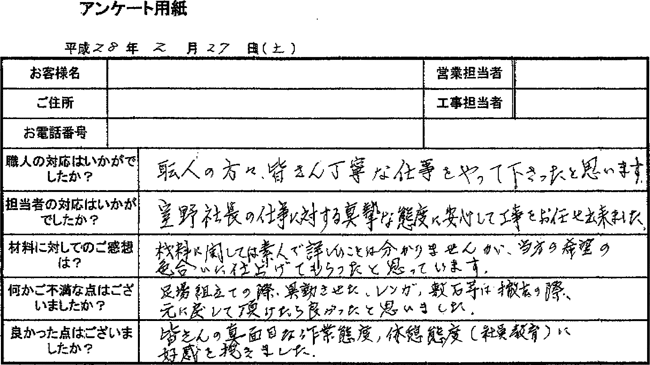 アンケート用紙
平成28年2月27日(土)
お客様名
営業担当者
ご住所
工事担当者
お電話番号
職人の対応はいかがで
したか?
職人の方々、皆さん丁寧な仕事をやって下さったと思います。
担当者の対応はいかが
でしたか?
室野社長の仕事に対する真摯な態度に安心して工事をお任せ出来ました。
材料に対してのご感想
は?
材料に関しては素人で詳しいことは分かりませんが、当方の希望の
色合いに仕上げてもらったと思っています。
何かご不満な点はござ
いましたか?
足場組立ての際、異動させた、レンガ、敷石等は撤去の際、
元に戻して頂けたら良かったと思いました。
良かった点はございま
したか?
皆さんの真面目な作業態度,体憩態度(社員教育)に
好感を抱きました.